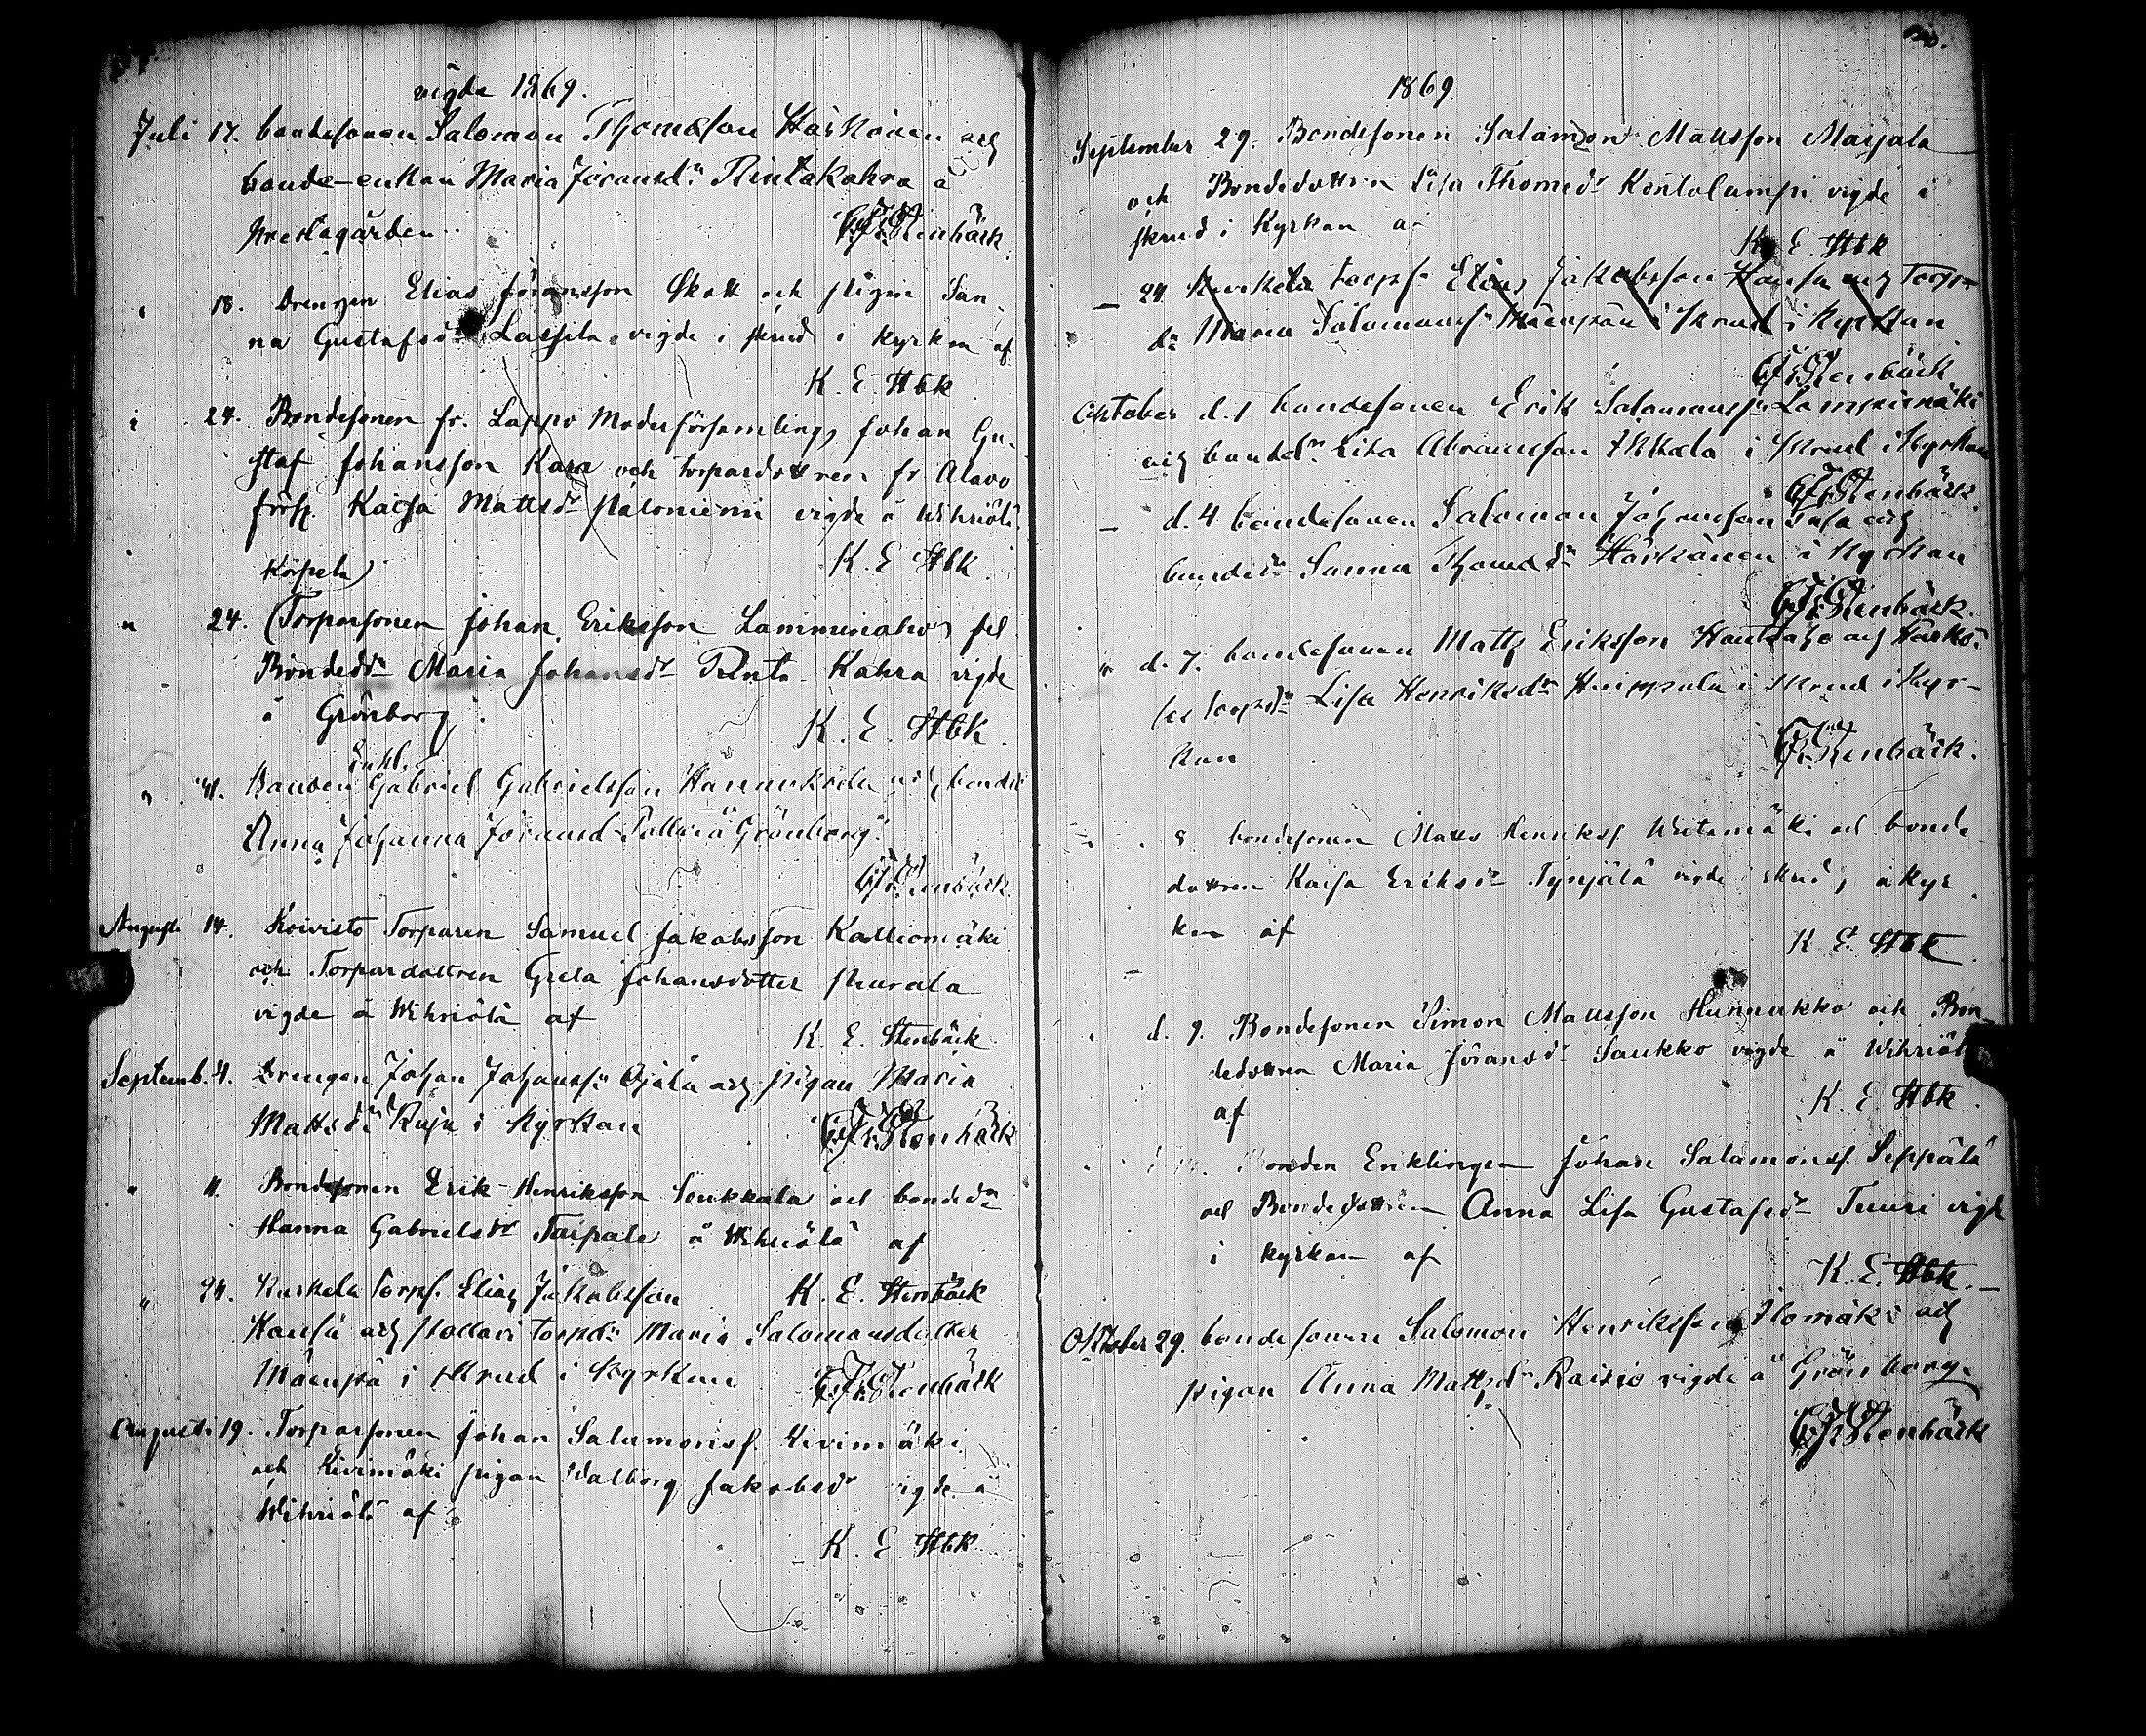 vigde 1869.
Juli 17. bondesonen Salomon Thomasson Härkönen och
bonde-enkan Maria Jöransdr Rintakahra å
Prestagården. C. F. Stenbäck
" 18. Drengen Elias Jöransson Skott och pigan San-
na Gustafsdr Lassila vigde i skrud i kyrkan af
K. E. Stbk
" 24. Bondesonen fr. Lappo Moderförsamling, Johan Gu-
staf Johansson Kara och torpardottren fr Alavo
förs. Kaisa Mattsdr Saloniemi vigde å Wihriälä
K. E. Stbk
Korpela)
" 24. (Torparsonen Johan Eriksson Lamminaho, och
Bondedr Maria Johansdr Rinta-Kahra vigde
å Grönborg. K. E. Stbk
Enkl.
" 31. Bonden Gabriel Gabrielsson Hannuksela och bondedr
Anna Johanna Jöransd Pollari å Grönborg.
C. F. Stenbäck
Augusti 14. Koivisto Torparen Samuel Jakobsson Kalliomäki
och Torpardottren Greta Johansdotter
vigde å Wihriälä af
K. E. Stenbäck
Septemb. 4. Drengen Johan Johanss: Ojala och pigan Maria
Mattsdr i Kyrkan C. F. Stenbäck
" 11. Bondesonen Erik Henriksson Seukkala och bondedr
Hanna Gabrielsdr Taipale å Wihriälä af
K. E. Stenbäck
" 24. Kuskela Torps. Elias Jakobsson
Hansu och Pollari torpdr Maria Salomonsdotter
Mäenpä i skrud i Kyrkan C. F. Stenbäck
Augusti 19. Torparsonen Johan Salomonss. Kivimäki
och Kivimäki pigan Walborg Jakobsdr vigde å
Wihriälä af
K. E. Stbk
1869.
September 29. Bondesonen Salomon Mattsson Marjala
och Bondedottren Lisa Thomedr Kontolampi vigde i
skrud i Kyrkan af
K. E. Stbk
— 24 Kuskela torps. Elias Jakobsson Hansu och Torpa-
dr Maria Salomons. Mäenpää i skrud i Kyrkan
C. F. Stenbäck
Oktober d. 1 bondesonen Erik Salomonss. Lampinmäki
och bondedr. Lisa Abramsson i skrud i Kyrkan
C. F. Stenbäck
— d. 4 bondesonen Salomon Johansson och
bondedr Sanna Thomasdr Härkönen i Kyrkan
C. F. Stenbäck.
" d. 7. bondesonen Matts Eriksson Hautaho och
torpdr Lisa Henriksdr i skrud i Kyr-
kan C. F. Stenbäck.
" 8 bondesonen Matts Henriks. och bonde
dottren Kaisa Eriksdr Tynjälä vigde i skrud, i kyr
kan af
K. E. Stbk
" d. 9. Bondesonen Simon Mattsson Hunnakko och Bon
dedottren Maria Jöransdr Saukko vigde å Wihriälä
af K. E. Stbk
Bonden Enklingen Johan Salamonss. Seppälä
och Bondedottren Anna Lisa Gustafsdr Tuuri vigde
i kyrkan af
K. E. Stbk.
Oktober 29. bondesonen Salomon Henriksson Ilomäki och
pigan Anna Mattsdr Raisio vigde å Grönborg
C. F. Stenbäck